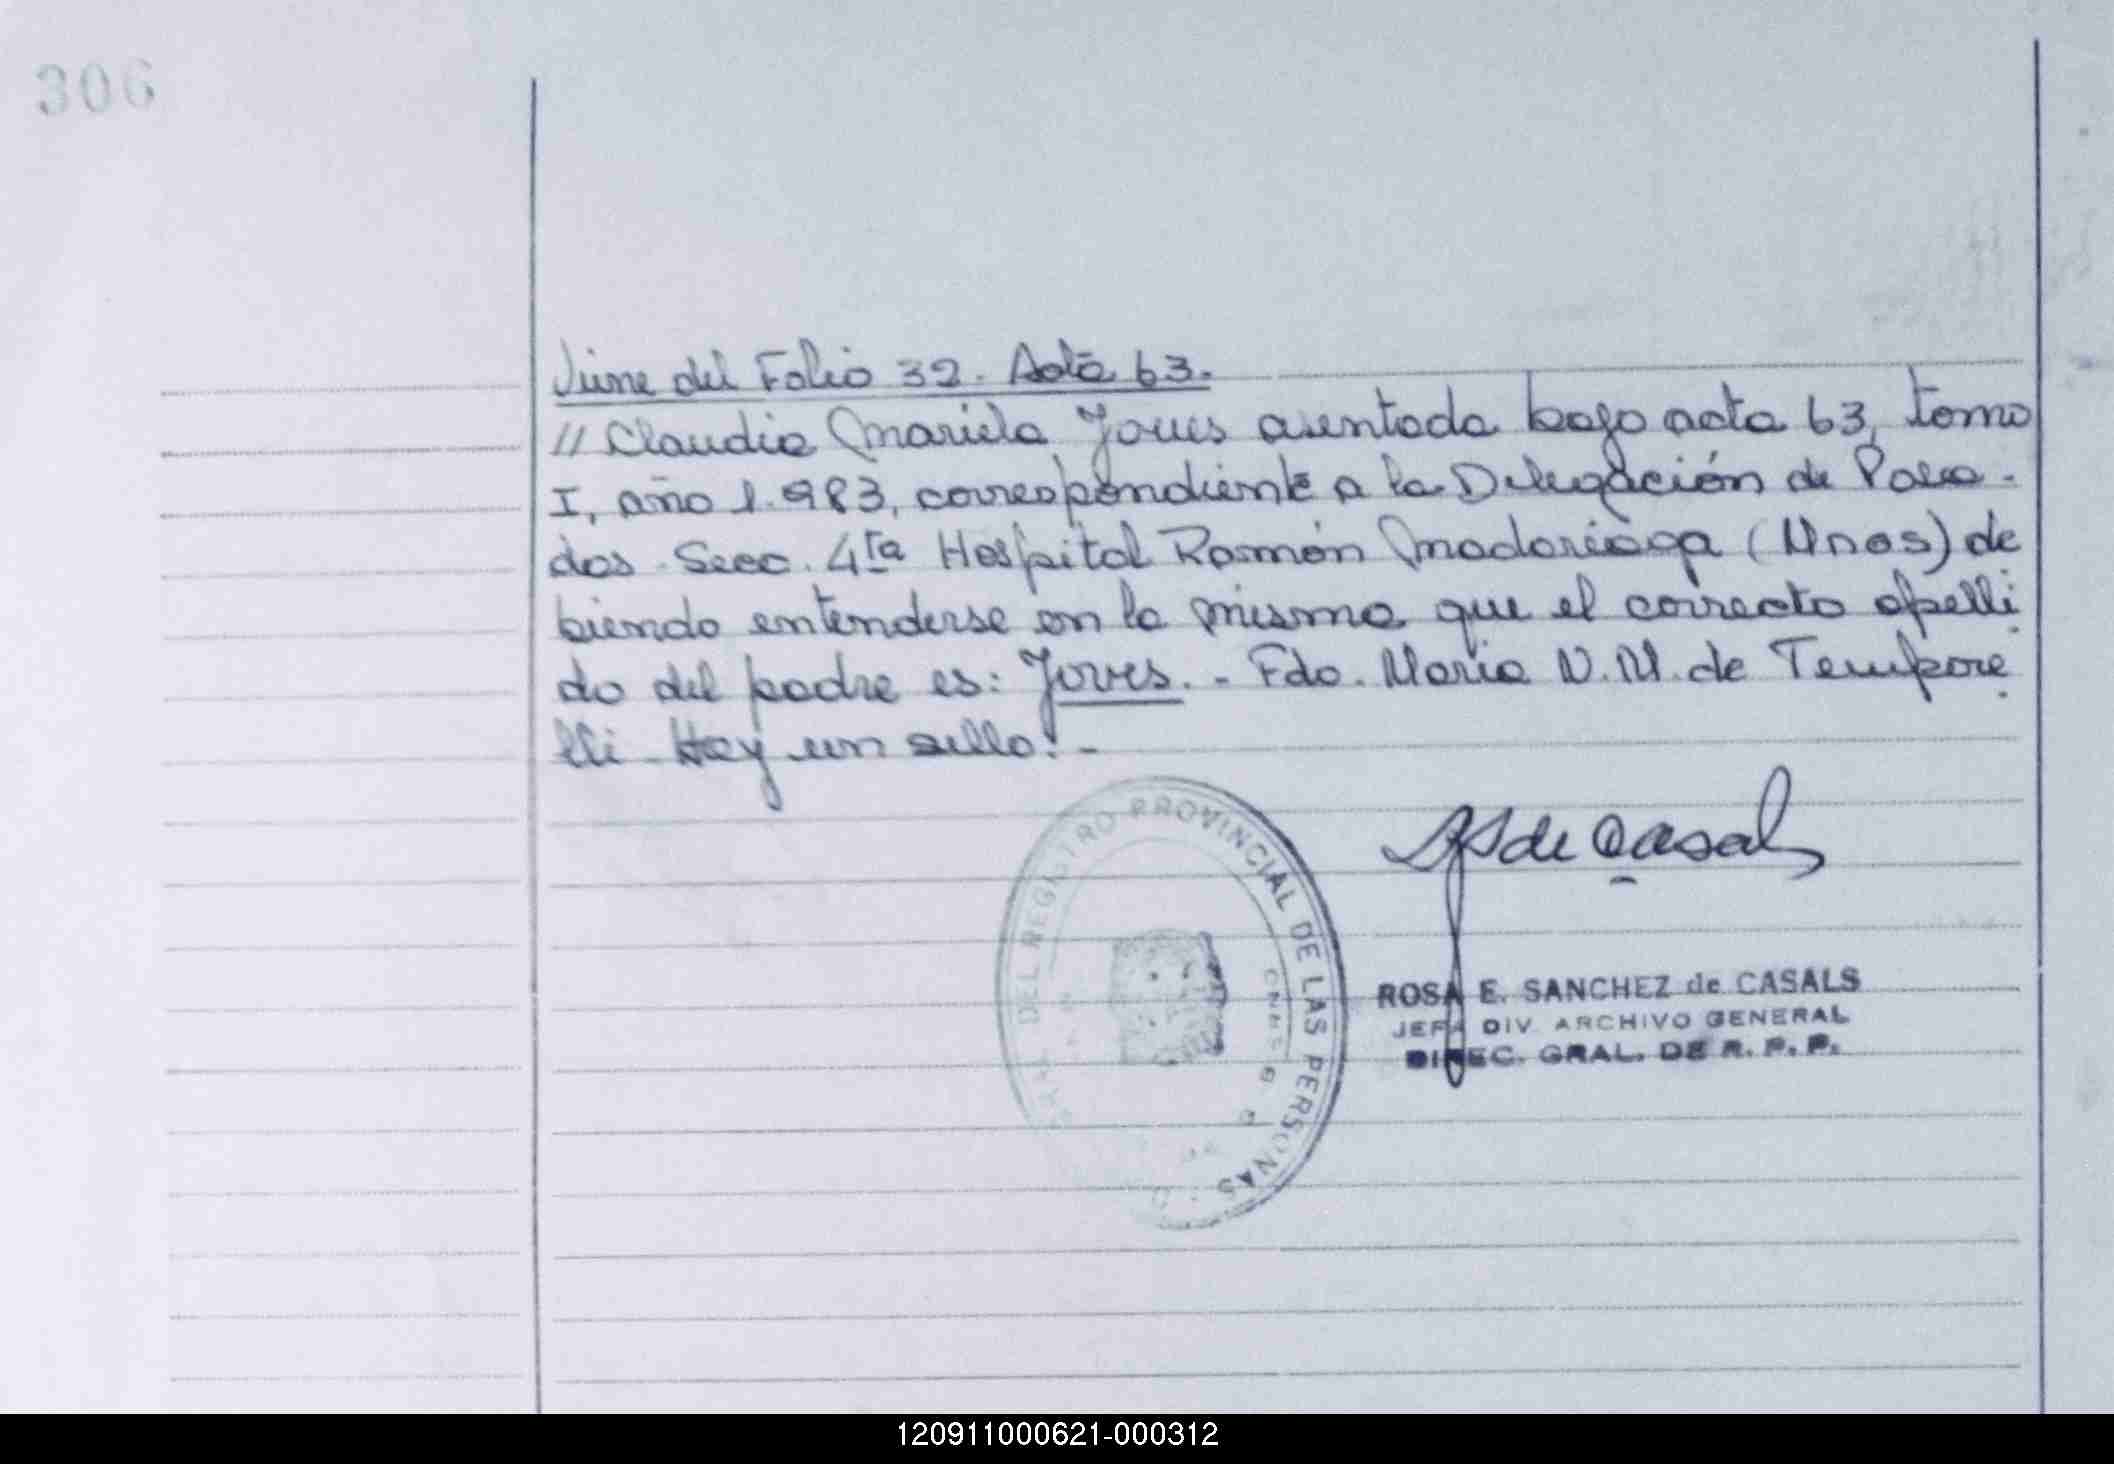 306
Viene del Folio 32. Acta 63.
// Claudia Mariela Joves asentada bajo acta 63, tomo
I, año 1.983, correspondiente a la Delegación de Posa-
das - Secc. 4ta Hospital Ramón Madariaga (Mnes) de
biendo entenderse en la misma que el correcto apelli
do del padre es: Joves. - Fdo. María N. M. de Tempore
lli - Hay un sello! -
DEL REGISTRO PROVINCIAL DE LAS PERSONAS
RS de Casals
ROSA E. SANCHEZ de CASALS
JEFA DIV. ARCHIVO GENERAL
DIREC. GRAL. DE R. P. P.
120911000621-000312